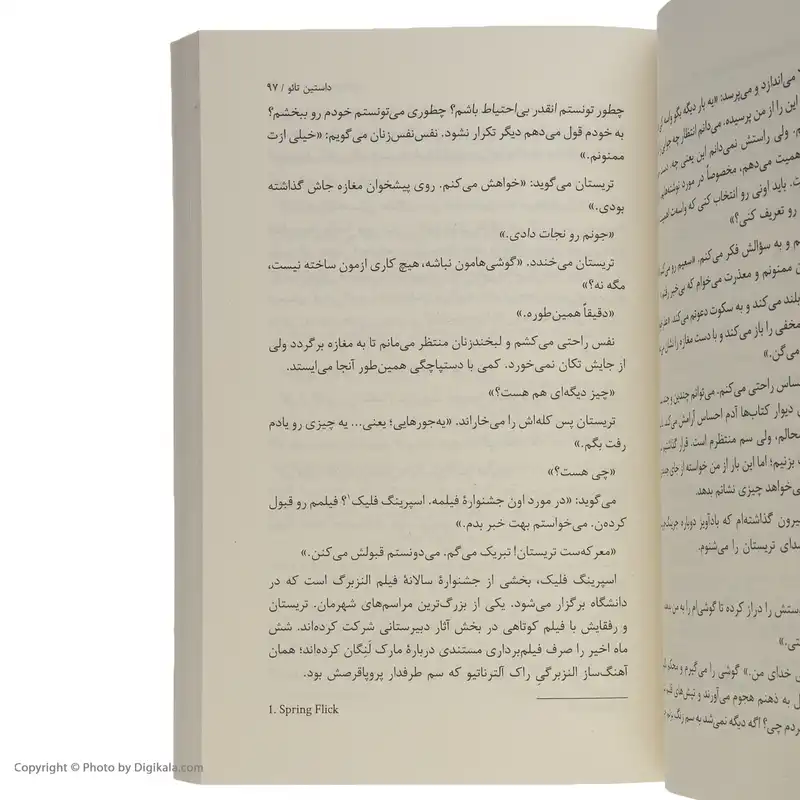 داستین تائو / ۹۷
چطور تونستم انقدر بی‌احتیاط باشم؟ چطوری می‌تونستم خودم رو ببخشم؟
به خودم قول می‌دهم دیگر تکرار نشود. نفس‌نفس‌زنان می‌گویم: «خیلی ازت
ممنونم.»
تریستان می‌گوید: «خواهش می‌کنم. روی پیشخوان مغازه جاش گذاشته
بودی.»
«جونم رو نجات دادی.»
تریستان می‌خندد. «گوشی‌هامون نباشه، هیچ کاری ازمون ساخته نیست،
مگه نه؟»
«دقیقاً همین‌طوره.»
نفس راحتی می‌کشم و لبخندزنان منتظر می‌مانم تا به مغازه برگردد ولی
از جایش تکان نمی‌خورد. کمی با دستپاچگی همین‌طور آنجا می‌ایستد.
«چیز دیگه‌ای هم هست؟»
تریستان پس کله‌اش را می‌خاراند. «یه‌جورهایی؛ یعنی... یه چیزی رو یادم
رفت بگم.»
«چی هست؟»
می‌گوید: «در مورد اون جشنوارۀ فیلمه. اسپرینگ فلیک۱؟ فیلمم رو قبول
کرده‌ن. می‌خواستم بهت خبر بدم.»
«معرکه‌ست تریستان! تبریک می‌گم. می‌دونستم قبولش می‌کنن.»
اسپرینگ فلیک، بخشی از جشنوارۀ سالانۀ فیلم النزبرگ است که در
دانشگاه برگزار می‌شود. یکی از بزرگ‌ترین مراسم‌های شهرمان. تریستان
و رفقایش با فیلم کوتاهی در بخش آثار دبیرستانی شرکت کرده‌اند. شش
ماه اخیر را صرف فیلم‌برداری مستندی دربارۀ مارک لَنِگان کرده‌اند؛ همان
آهنگ‌ساز النزبرگیِ راک آلترناتیو که سم طرفدار پروپاقرصش بود.
1. Spring Flick
می‌اندازد و می‌پرسد: «یه بار دیگه بگو واسه
این را از من پرسیده. می‌دانم انتظار چه
ولی راستش نمی‌دانم این یعنی چه.
همیت می‌دهم، مخصوصاً در مورد
باید اونی رو انتخاب کنی که واسه‌ت
رو تعریف کنی؟»
و به سؤالش فکر می‌کنم. «سعیم رو
ممنونم و معذرت می‌خوام که بی‌خبر
بلند می‌کند و به سکوت دعوتم می‌کند.
مخفی را باز می‌کند و با دست مغازه را نشان
می‌گن.»
راحتی می‌کنم. می‌توانم چندین و
دیوار کتاب‌ها آدم احساس آرامش می‌کند
ولی سم منتظرم است. قرار
بزنیم؛ اما این بار از من خواسته از جای
می‌خواهد چیزی نشانم بدهد.
گذاشته‌ام که بادآویز دوباره
تریستان را می‌شنوم.
را دراز کرده تا گوشی‌ام را به من
خدای من.» گوشی را می‌گیرم و
به ذهنم هجوم می‌آورند و
چی؟ اگه دیگه نمی‌شد به سم زنگ
Copyright © Photo by Digikala.com